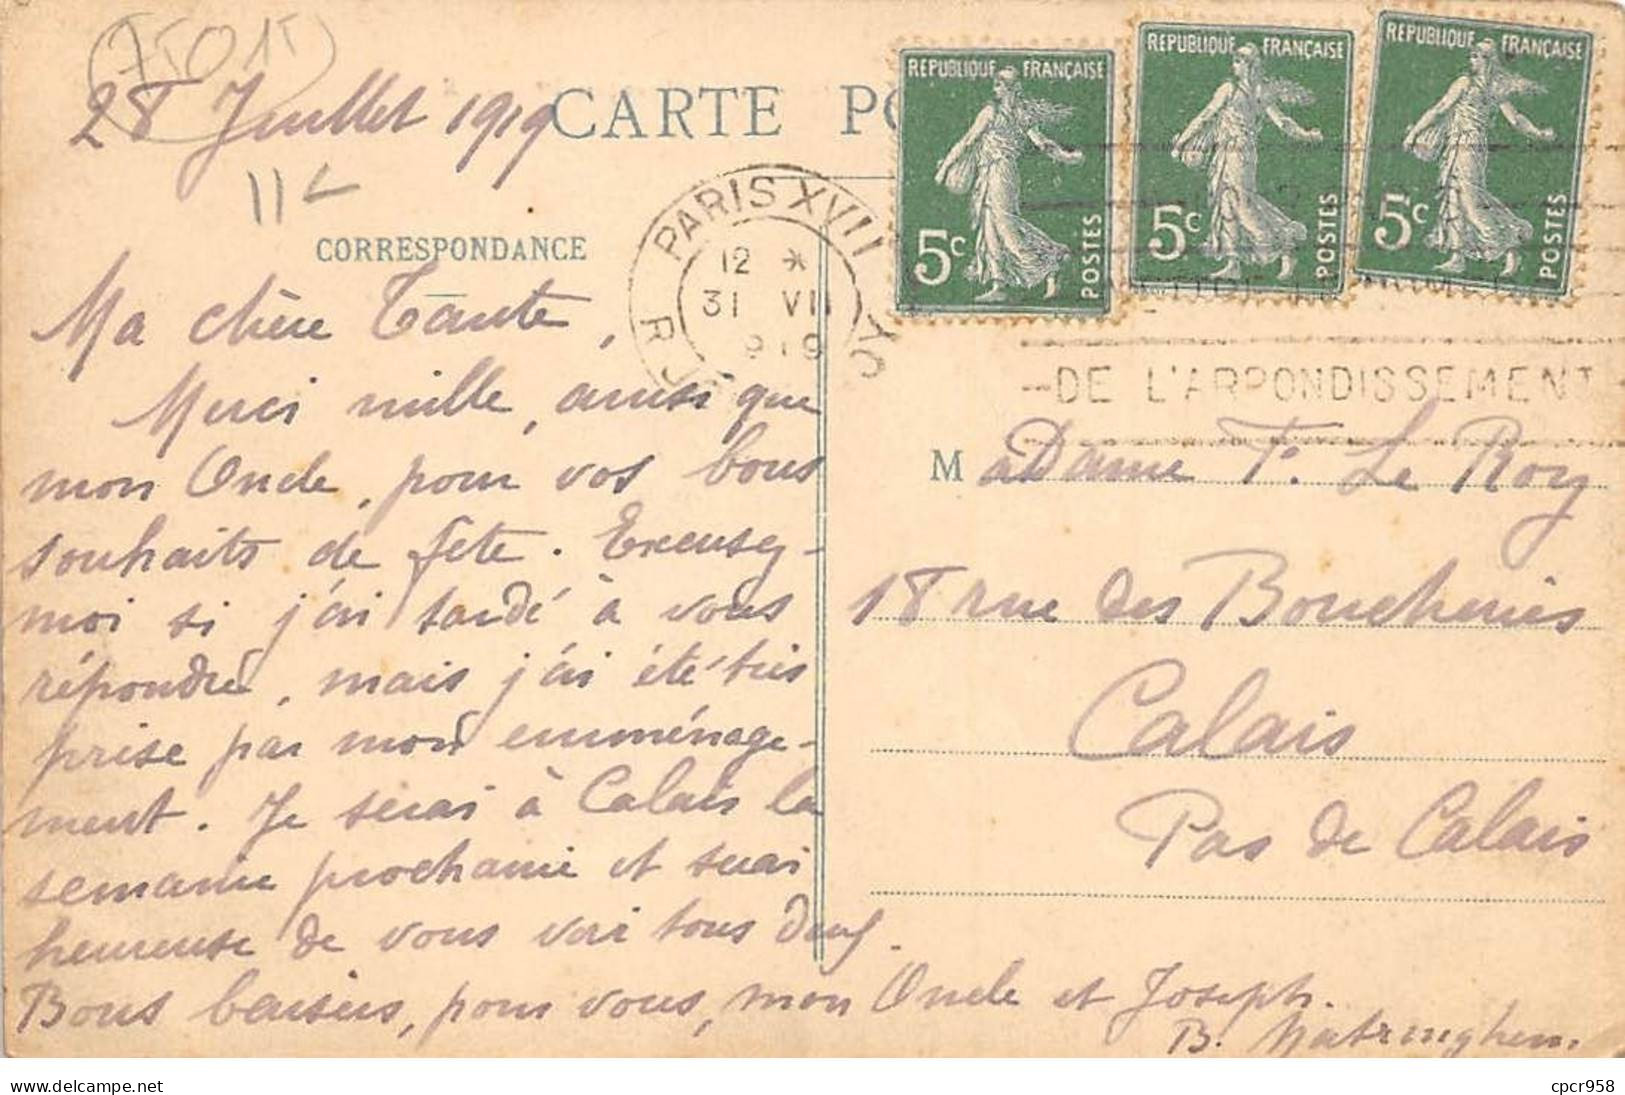 75015
28 Juillet 1919
CARTE PO
REPUBLIQUE FRANÇAISE
5c POSTES
REPUBLIQUE FRANÇAISE
5c POSTES
REPUBLIQUE FRANÇAISE
5c POSTES
PARIS XVII
12 *
31 VII
919
DE L'ARRONDISSEMENT
CORRESPONDANCE
Ma chère Tante,
Merci mille, ainsi que
mon Oncle, pour vos bons
souhaits de fête. Excusez-
moi si j'ai tardé à vous
répondre, mais j'ai été très
prise par mon emménage-
ment. Je serai à Calais la
semaine prochaine et serai
heureuse de vous voir tous deux.
Bons baisers, pour vous, mon Oncle et Joseph.
B. Matringhem.
Madame F. Le Roy
18 rue des Boucheries
Calais
Pas de Calais
cpcr958